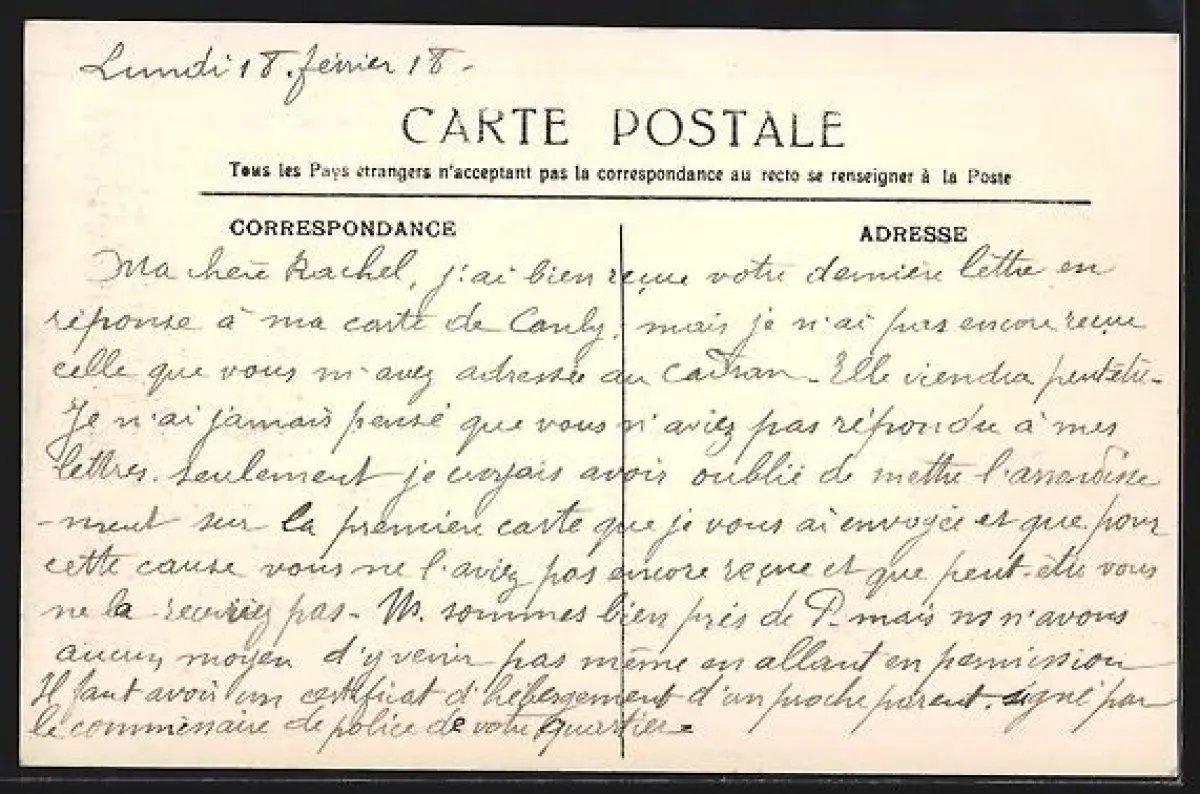 Lundi 18. février 18 -
CARTE POSTALE
Tous les Pays étrangers n'acceptant pas la correspondance au recto se renseigner à la Poste
CORRESPONDANCE
ADRESSE
Ma chère Rachel, j'ai bien reçue votre dernière lettre en
réponse à ma carte de Canly, mais je n'ai pas encore reçue
celle que vous m'avez adressée au - Elle viendra peut être -
Je n'ai jamais pensé que vous n'aviez pas répondu à mes
lettres. seulement je croyais avoir oublié de mettre l'arrondisse
-ment sur la première carte que je vous ai envoyée et que pour
cette cause vous ne l'aviez pas encore reçue et que peut-être vous
ne la receviez pas - Ns. sommes bien près de P. mais ns n'avons
aucun moyen d'y venir pas même en allant en permission
Il faut avoir un certificat d'hébergement d'un proche parent. signé par
le commissaire de police de votre quartier -